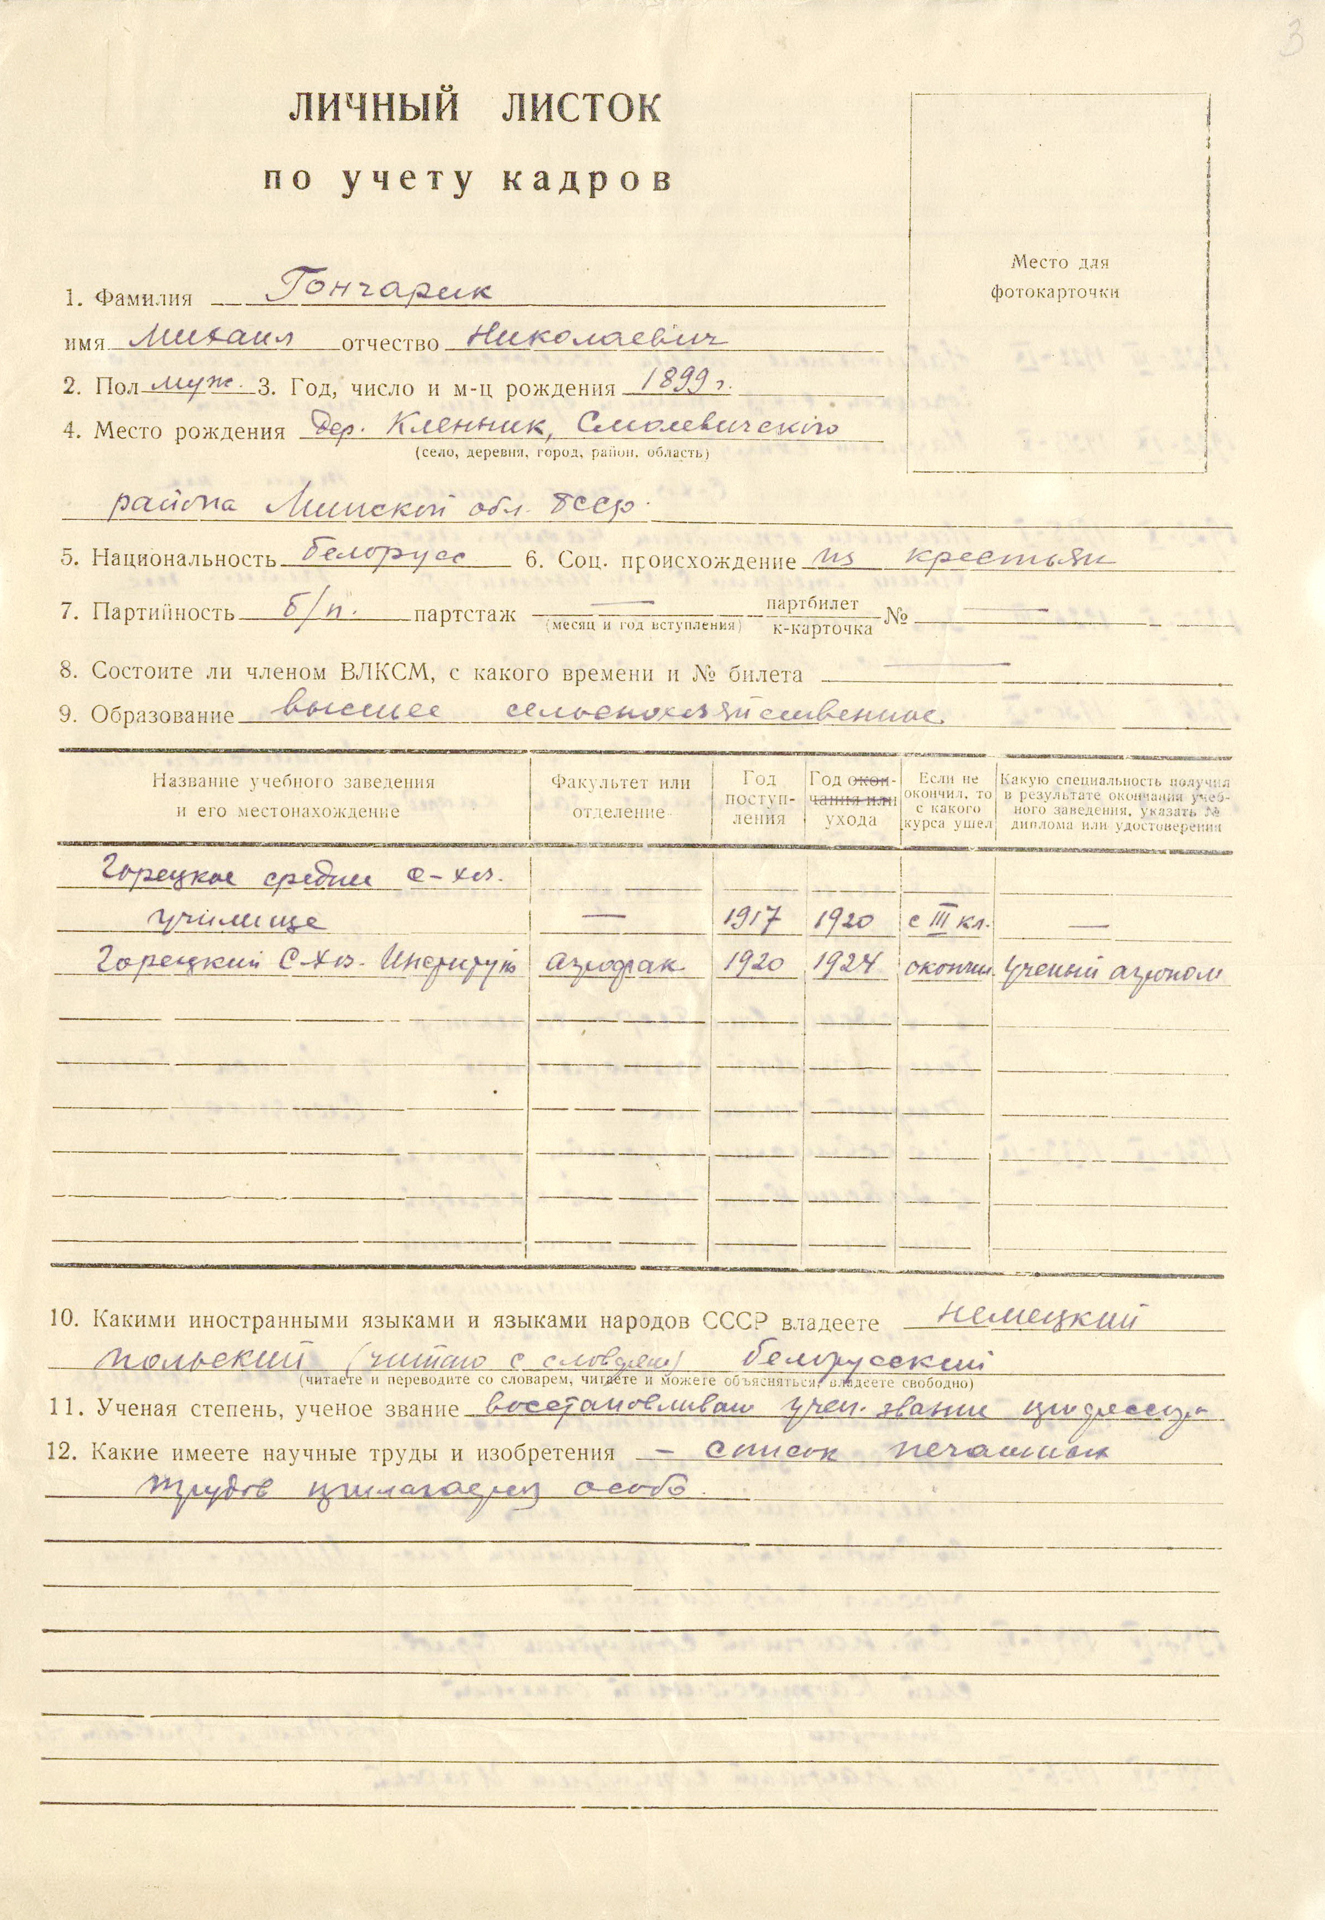 3
ЛИЧНЫЙ ЛИСТОК
по учету кадров
Место для
фотокарточки
1. Фамилия Гончарик
имя Михаил отчество Николаевич
2. Пол муж. 3. Год, число и м-ц рождения 1899 г.
4. Место рождения дер. Кленник, Смолевичского
(село, деревня, город, район, область)
района Минской обл. БССР.
5. Национальность белорусс 6. Соц. происхождение из крестьян
7. Партийность б/п. партстаж — партбилет № —
(месяц и год вступления) к-карточка
8. Состоите ли членом ВЛКСМ, с какого времени и № билета —
9. Образование высшее сельскохозяйственное
Название учебного заведения и его местонахождение
Факультет или отделение
Год поступ-ления
Год окон-чания или ухода
Если не окончил, то с какого курса ушел
Какую специальность получил в результате окончания учеб-ного заведения, указать № диплома или удостоверения
Горецкое средне с-хоз.
училище — 1917 1920 с III кл. —
Горецкий С-Хоз. Институт агрофак. 1920 1924 окончил ученый агроном
10. Какими иностранными языками и языками народов СССР владеете немецкий
польский (читаю с словарем) белорусский
(читаете и переводите со словарем, читаете и можете объясняться, владеете свободно)
11. Ученая степень, ученое звание восстановливаю учен. звание профессора
12. Какие имеете научные труды и изобретения – список печатных
трудов прилагаю особо.